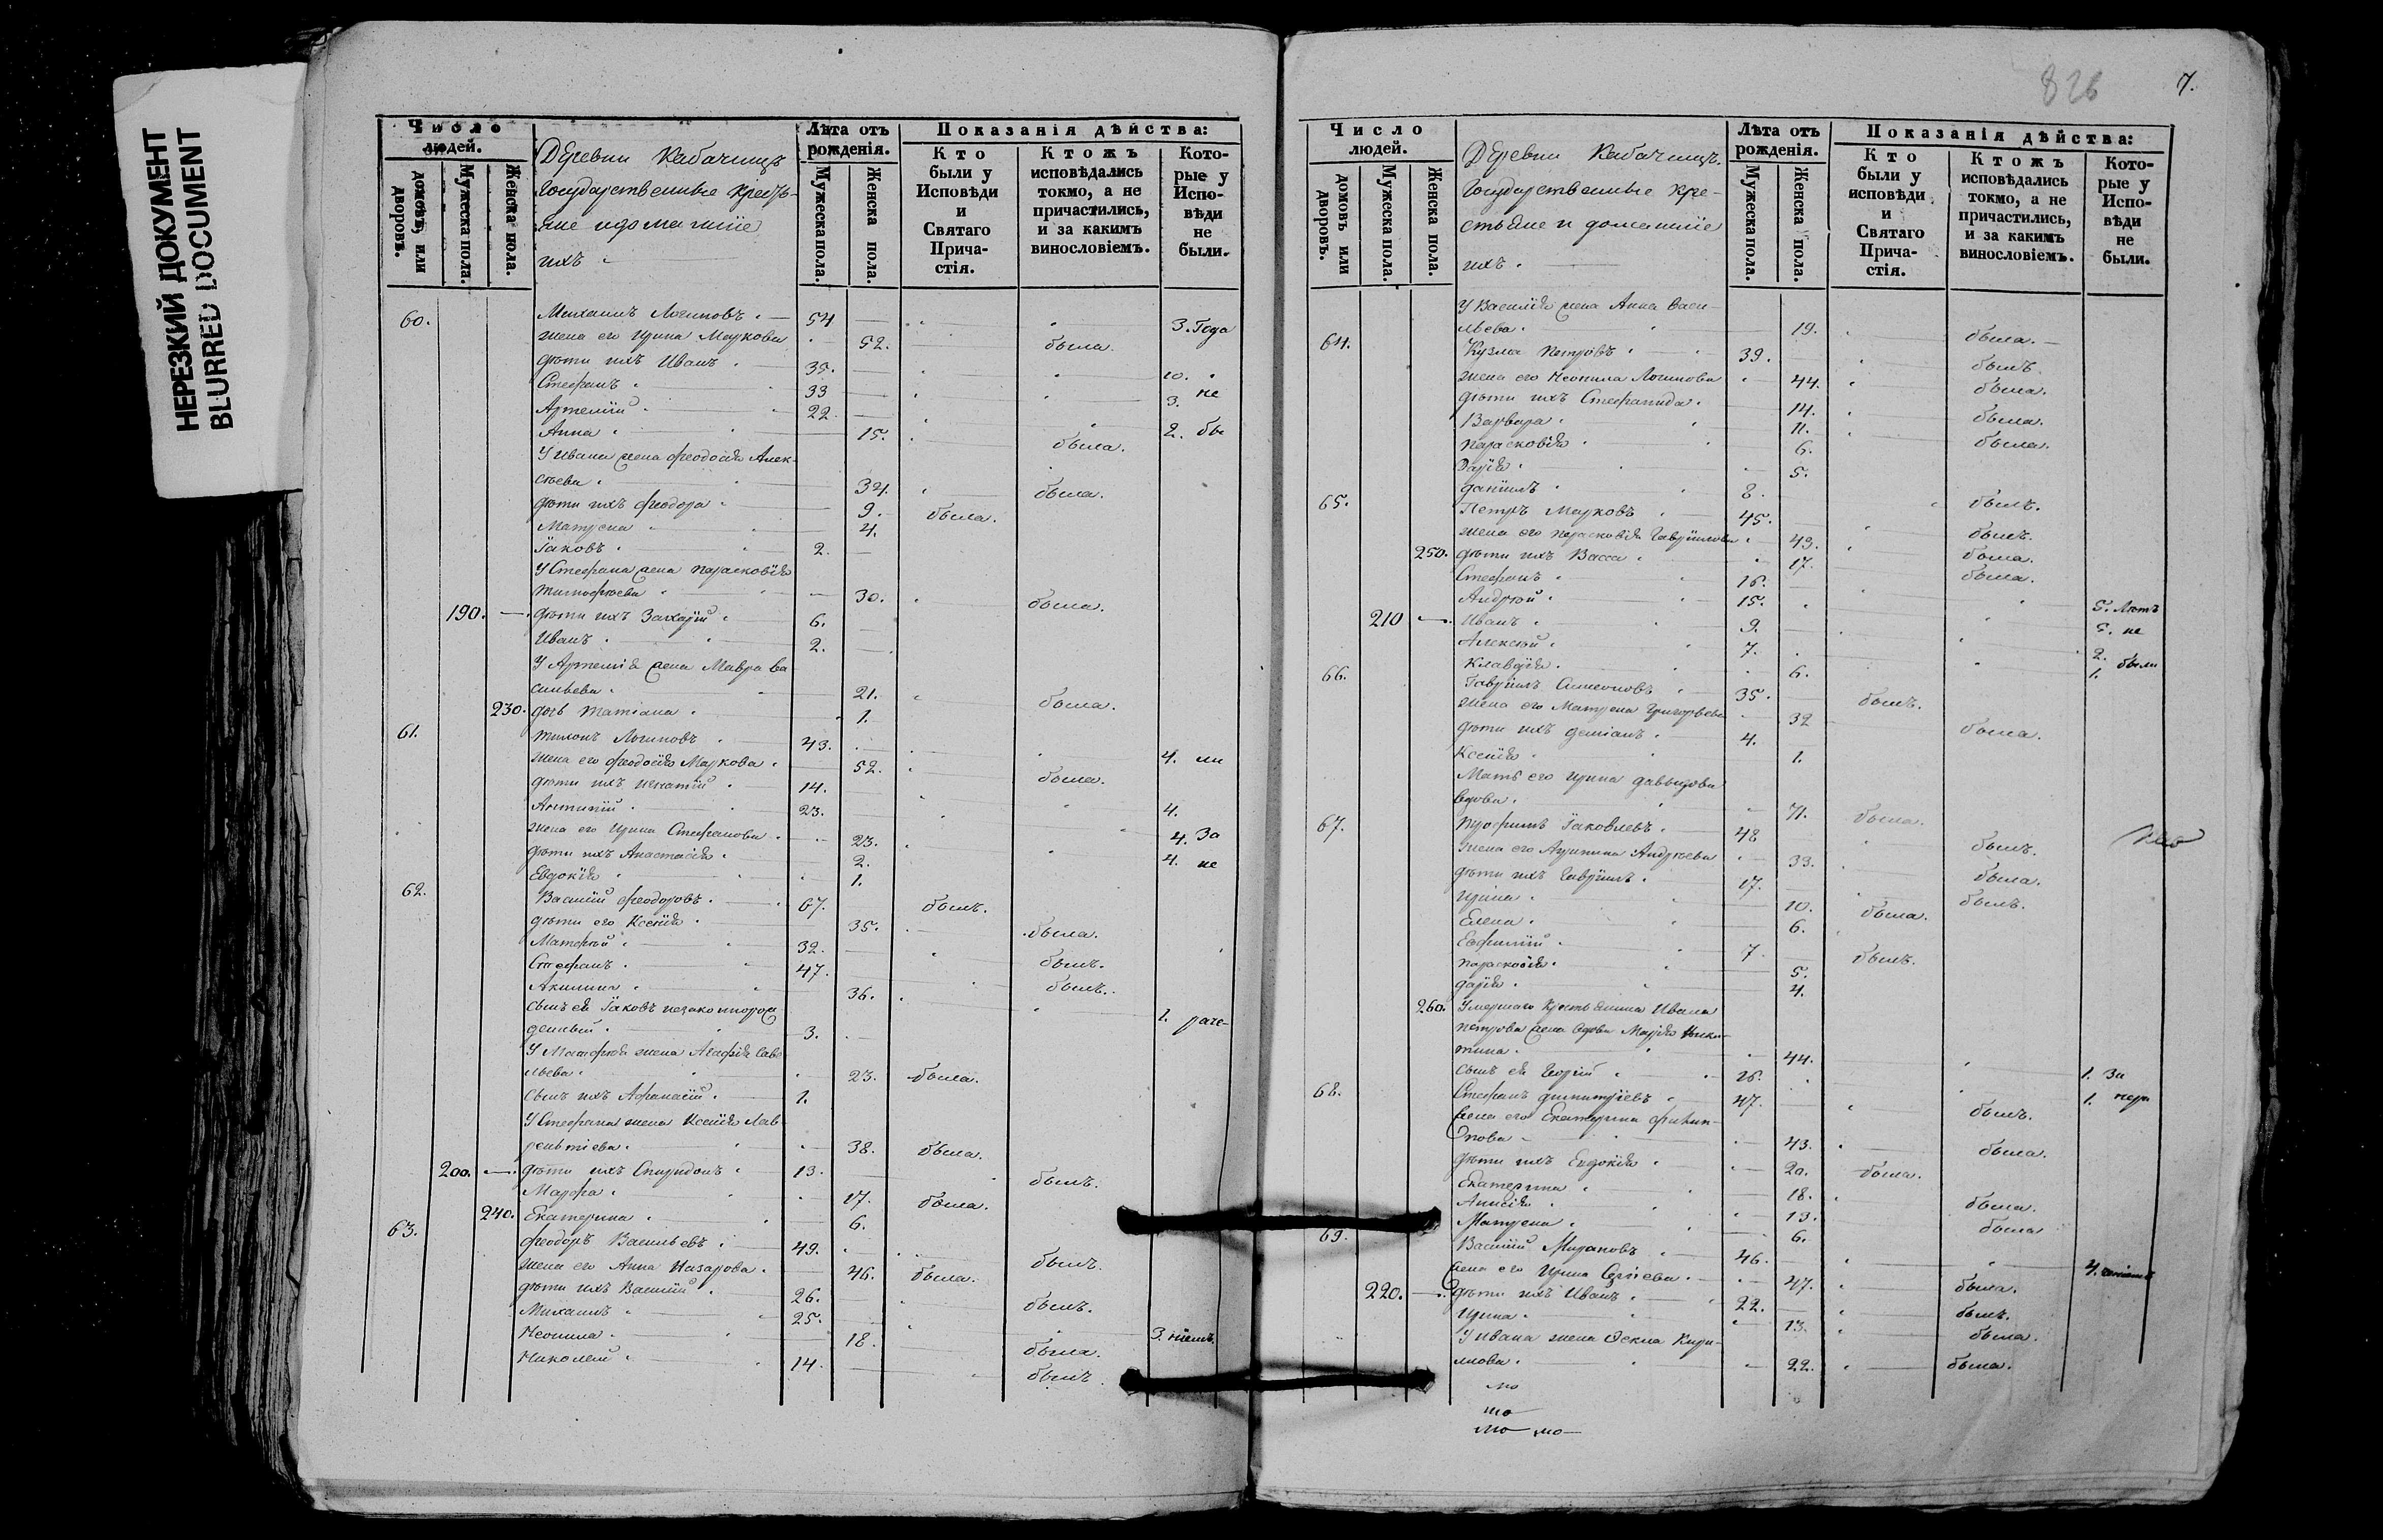 НЕРЕЗКИЙ ДОКУМЕНТ
BLURRED DOCUMENT
Число людей.
домовъ, или дворовъ.
Мужеска пола.
Женска пола.
Деревни Кабачищъ
Государственные Кресть-
яне и домашніе
ихъ
Лѣта отъ рожденія.
Мужеска пола.
Женска пола.
Показанія дѣйства:
Кто были у Исповѣди и Святаго Прича-стія.
Ктожъ исповѣдались токмо, а не причастились, и за какимъ винословіемъ.
Кото-рые у Испо-вѣди не были.
60. Михаилъ Логиновъ 54 3. Года
жена его Ирина Маркова 52. была.
дѣти ихъ Иванъ 35. 10.
Стефанъ 33 3. не
Артемій 22. 2. бы
Анна 15. была.
У Ивана жена Феодосія Алек-
сѣева 34. была.
дѣти ихъ Феодора 9. была.
Матрена 4.
Іаковъ 2.
У Стефана жена Парасковія
Тимофѣева 30. была.
190. дѣти ихъ Захарій 6.
Иванъ 2.
У Артемія жена Мавра Ва
сильева 21. была.
230. дочь Татіана 1.
61. Тихонъ Логиновъ 43. 4. ли
жена его Феодосія Маркова 52. была.
дѣти ихъ Игнатій 14.
Антипій 23. 4.
жена его Ирина Стефанова 23. 4. За
дѣти ихъ Анастасія 2. 4. не
Евдокія 1.
62. Василій Феодоровъ 67. былъ.
дѣти его Ксенія 35. была.
Матфей 32. былъ.
Стефанъ 47. былъ.
Акилина 36. 1. раче-
сынъ ея Іаковъ незаконнорож
денный 3.
У Матфея жена Агафія Саве
льева 23. была.
сынъ ихъ Афанасій 1.
У Стефана жена Ксенія Лав
рентіева 38. была.
200. дѣти ихъ Спиридонъ 13. былъ.
Марфа 17. была.
240. Екатерина 6.
63. Феодоръ Васильевъ 49. былъ.
жена его Анна Назарова 46. была.
дѣти ихъ Василій 26. былъ.
Михаилъ 25. 3. ніемъ.
Неонила 18. была.
Николай 14. былъ.
826
7.
Число людей.
домовъ или дворовъ.
Мужеска пола.
Женска пола.
Деревни Кабачищъ.
Государственные Кре-
стьяне и домашніе
ихъ.
Лѣта отъ рожденія.
Мужеска пола.
Женска пола.
Показанія дѣйства:
Кто были у исповѣди и Святаго Прича-стія.
Ктожъ исповѣдались токмо, а не причастились, и за какимъ винословіемъ.
Кото-рые у Испо-вѣди не были.
У Василія жена Анна Васи-
льева 19. была.
64. Кузма Петровъ 39. былъ.
жена его Неонила Логинова 44. была.
дѣти ихъ Стефанида 14. была.
Варвара 11. была.
Парасковія 6.
Дарія 5.
Даніилъ 8. былъ.
65. Петръ Марковъ 45. былъ.
жена его Парасковія Гавріилова 43. была.
250. дѣти ихъ Васса 17. была.
Стефанъ 16. 5. Лѣтъ
Андрей 15. 5. не
210 Иванъ 9. 2. были
Алексѣй 7. 1.
Клавдія 6.
66. Гавріилъ Симеоновъ 35. былъ.
жена его Матрена Григорьева 32 была.
дѣти ихъ Даміанъ 4.
Ксенія 1.
Мать его Ирина Давыдова
вдова 71. была.
67. Трофимъ Іаковлевъ 48 былъ.
жена его Агрипина Андреева 33. была.
дѣти ихъ Гавріилъ 17. былъ.
Ирина 10. была.
Елена 6.
Евфимій 7 былъ.
Парасковія 5.
Дарія 4.
260. Умершаго Крестьянина Ивана
Петрова жена вдова Марія Ники-
тина 44. 1. За
сынъ ея Георгій 26. 1. нера
68. Стефанъ Димитріевъ 47. былъ.
жена его Екатерина Филип-
пова 43. была.
дѣти ихъ Евдокія 20. была.
Екатерина 18. была.
Анисія 13. была
Матрена 6.
69. Василій Мироновъ 46. 4.
жена его Ирина Сергіева 47. была.
220. дѣти ихъ Иванъ 22. былъ.
Ирина 13. была.
У Ивана жена Фекла Кири-
ллова 22. была.